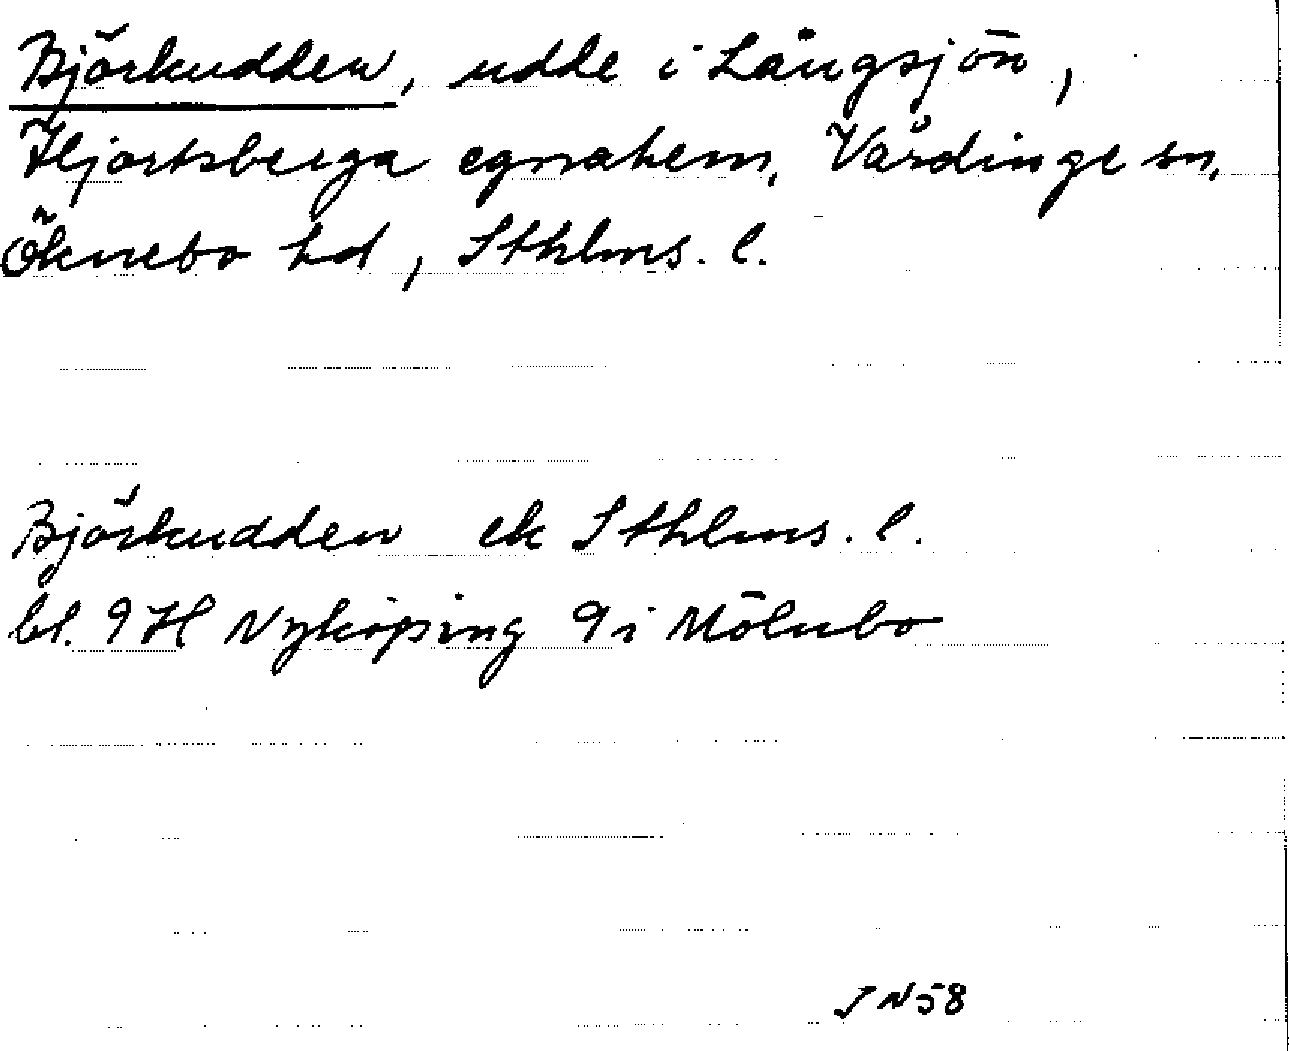 Björkudden, udde i Långsjön,
Hjortsberga egnahem, Vårdinge sn,
Öknebo hd, Sthlms. l.
Björkudden ek Sthlms. l.
bl. 9H Nyköping 9i Mölnbo
JN58